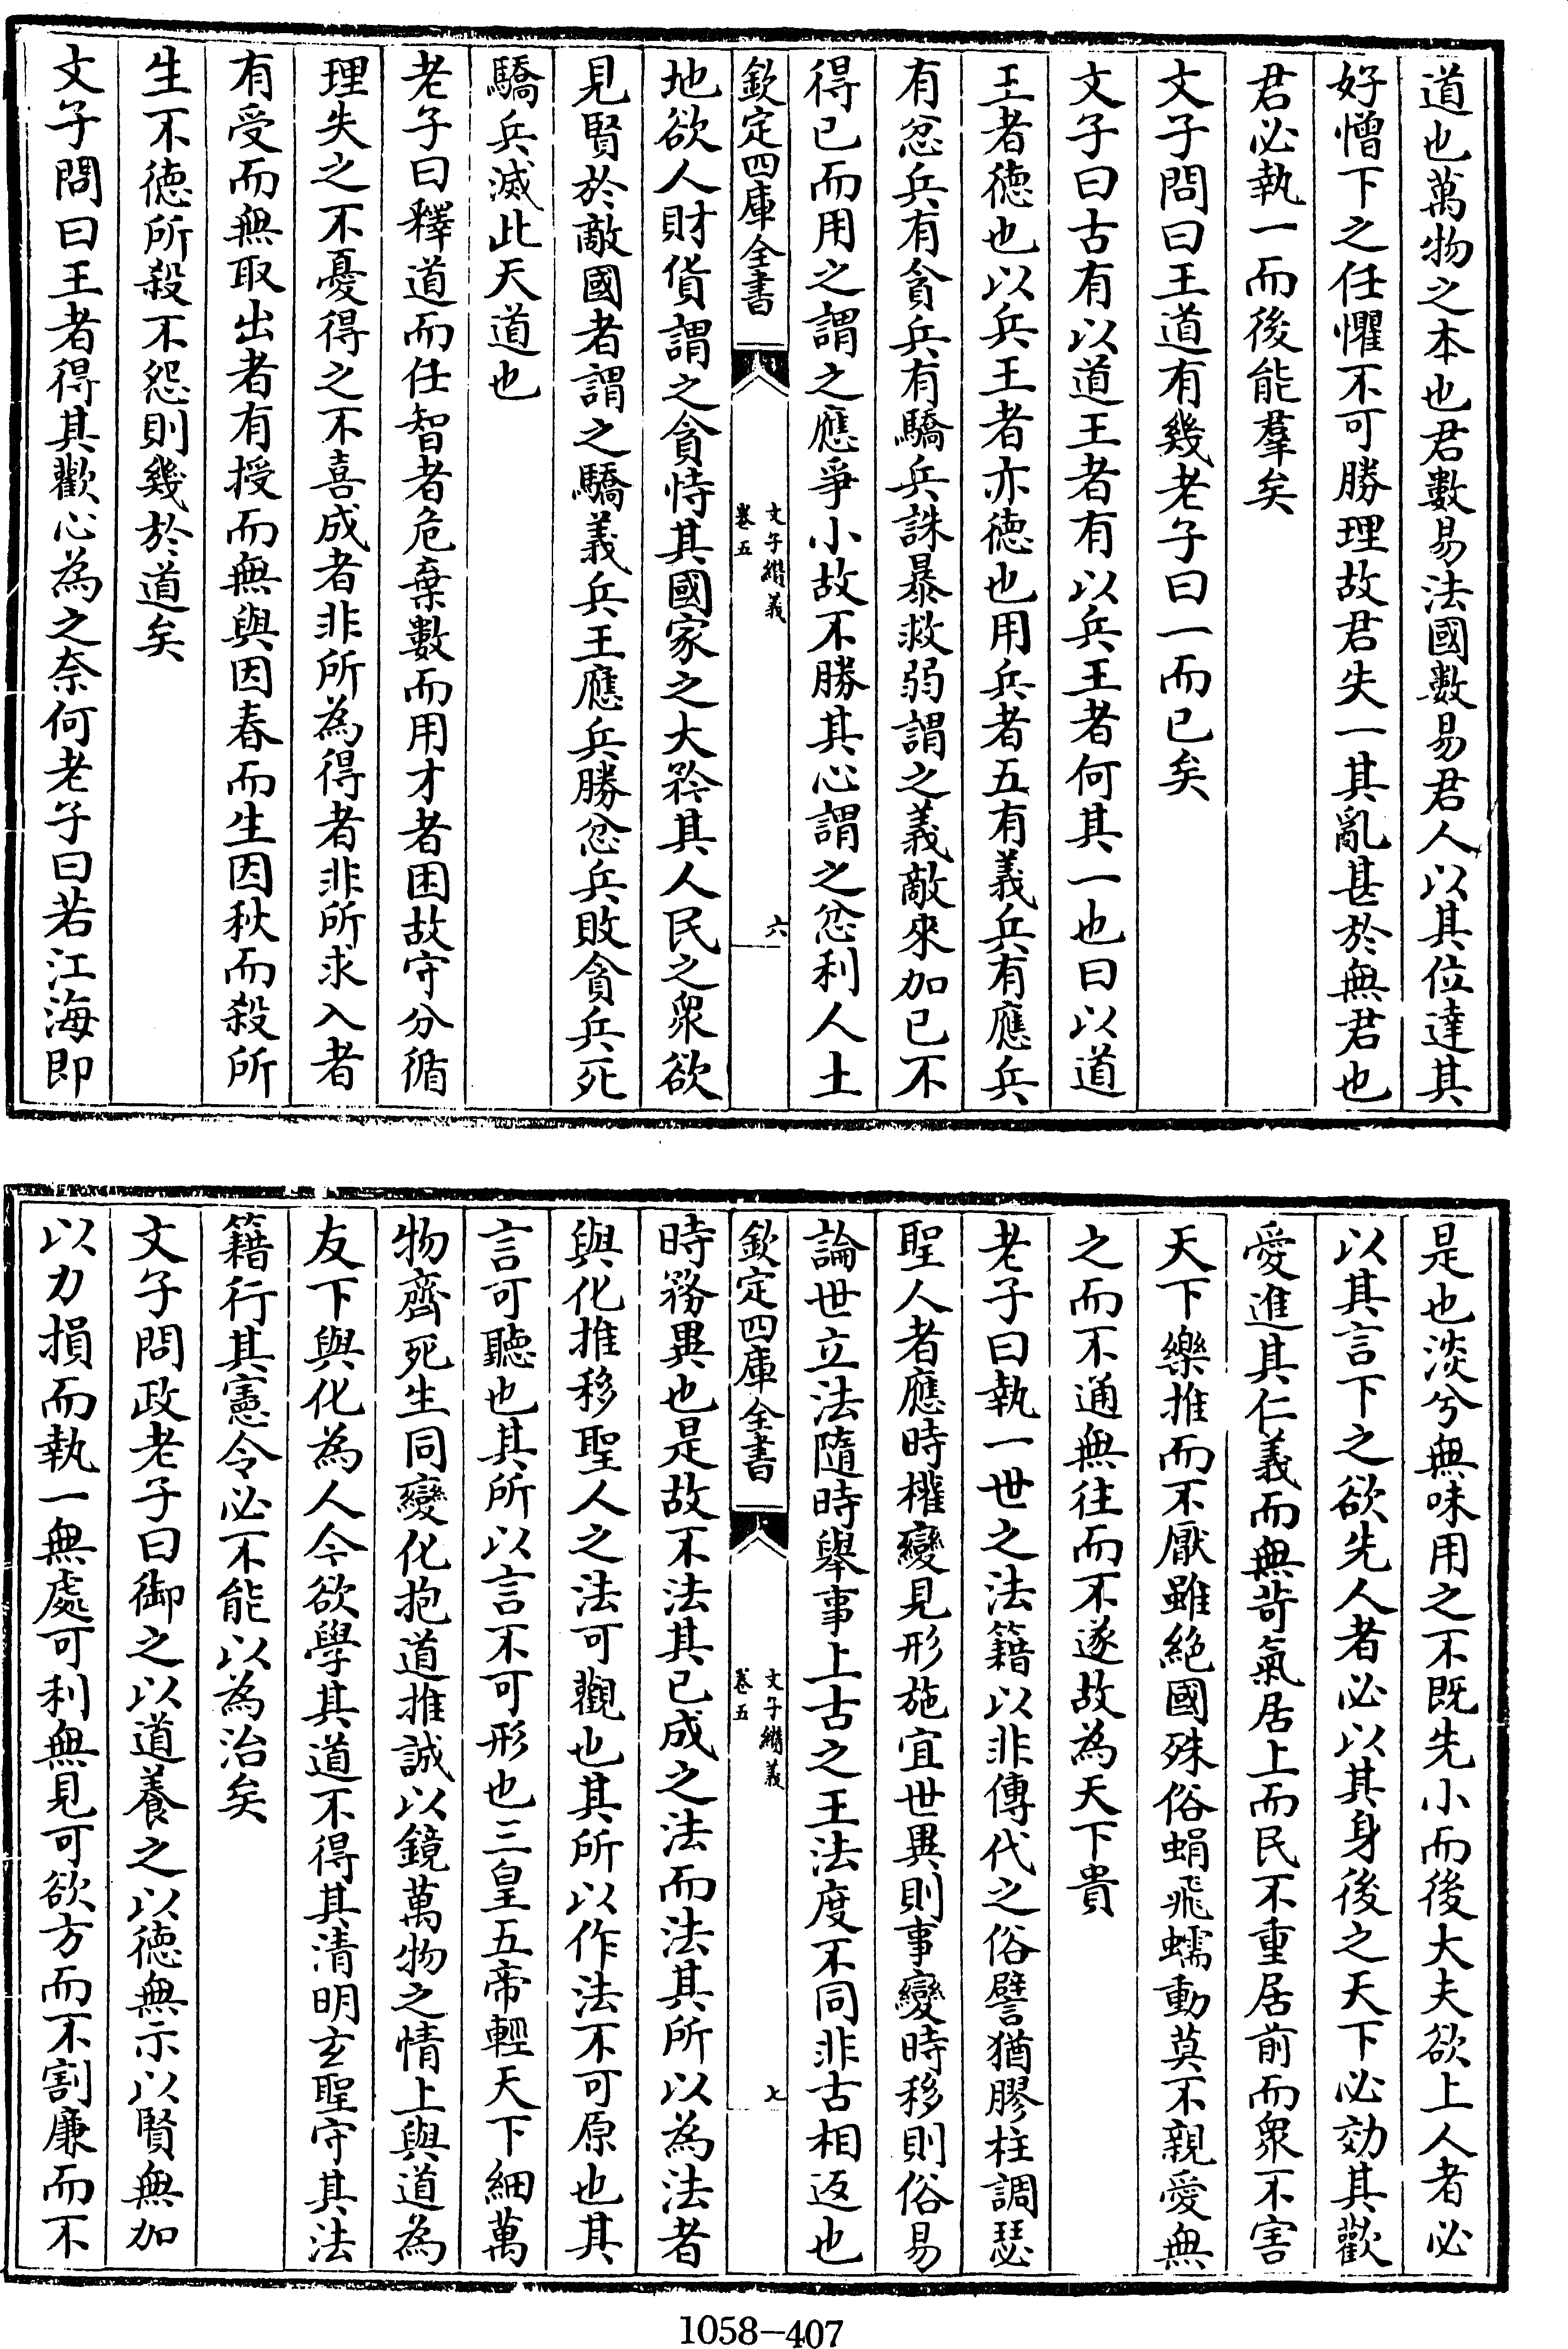 道也萬物之本也君數易法國數易君人以其位達其
好憎下之任懼不可勝理故君失一其亂甚於無君也
君必執一而後能羣矣
文子問曰王道有幾老子曰一而已矣
文子曰古有以道王者有以兵王者何其一也曰以道
王者徳也以兵王者亦徳也用兵者五有義兵有應兵
有忿兵有貪兵有驕兵誅暴救弱謂之義敵來加已不
得已而用之謂之應爭小故不勝其心謂之忿利人土
欽定四庫全書
文子纉義
卷五
六
地欲人財貨謂之貪恃其國家之大矜其人民之衆欲
見賢於敵國者謂之驕義兵王應兵勝忿兵敗貪兵死
驕兵滅此天道也
老子曰釋道而任智者危棄數而用才者困故守分循
理失之不憂得之不喜成者非所為得者非所求入者
有受而無取出者有授而無與因春而生因秋而殺所
生不徳所殺不怨則幾於道矣
文子問曰王者得其歡心為之奈何老子曰若江海即
是也淡兮無味用之不既先小而後大夫欲上人者必
以其言下之欲先人者必以其身後之天下必効其歡
愛進其仁義而無苛氣居上而民不重居前而衆不害
天下樂推而不厭雖絶國殊俗蜎飛蠕動莫不親愛無
之而不通無往而不遂故為天下貴
老子曰執一世之法籍以非傳代之俗譬猶膠柱調瑟
聖人者應時權變見形施宜世異則事變時移則俗易
論世立法隨時舉事上古之王法度不同非古相返也
欽定四庫全書
文子纉義
卷五
七
時務異也是故不法其已成之法而法其所以為法者
與化推移聖人之法可觀也其所以作法不可原也其
言可聽也其所以言不可形也三皇五帝輕天下細萬
物齊死生同變化抱道推誠以鏡萬物之情上與道為
友下與化為人今欲學其道不得其清明玄聖守其法
籍行其憲令必不能以為治矣
文子問政老子曰御之以道養之以徳無示以賢無加
以力損而執一無處可利無見可欲方而不割廉而不
1058-407